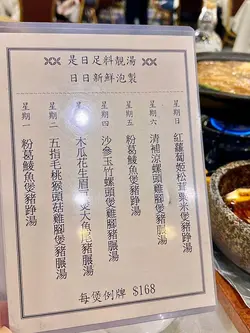 是日足料靚湯
日日新鮮泡製
星期一 粉葛鯪魚煲豬踭湯
星期二 五指毛桃猴頭菇雞腳煲豬腱湯
星期三 木瓜花生眉豆煲大魚尾豬腱湯
星期四 沙參玉竹螺頭煲雞腳豬腱湯
星期五 粉葛鯪魚煲豬踭湯
星期六 清補涼螺頭雞腳煲豬腱湯
星期日 紅蘿蔔姬松茸粟米煲豬踭湯
每煲例牌 $168